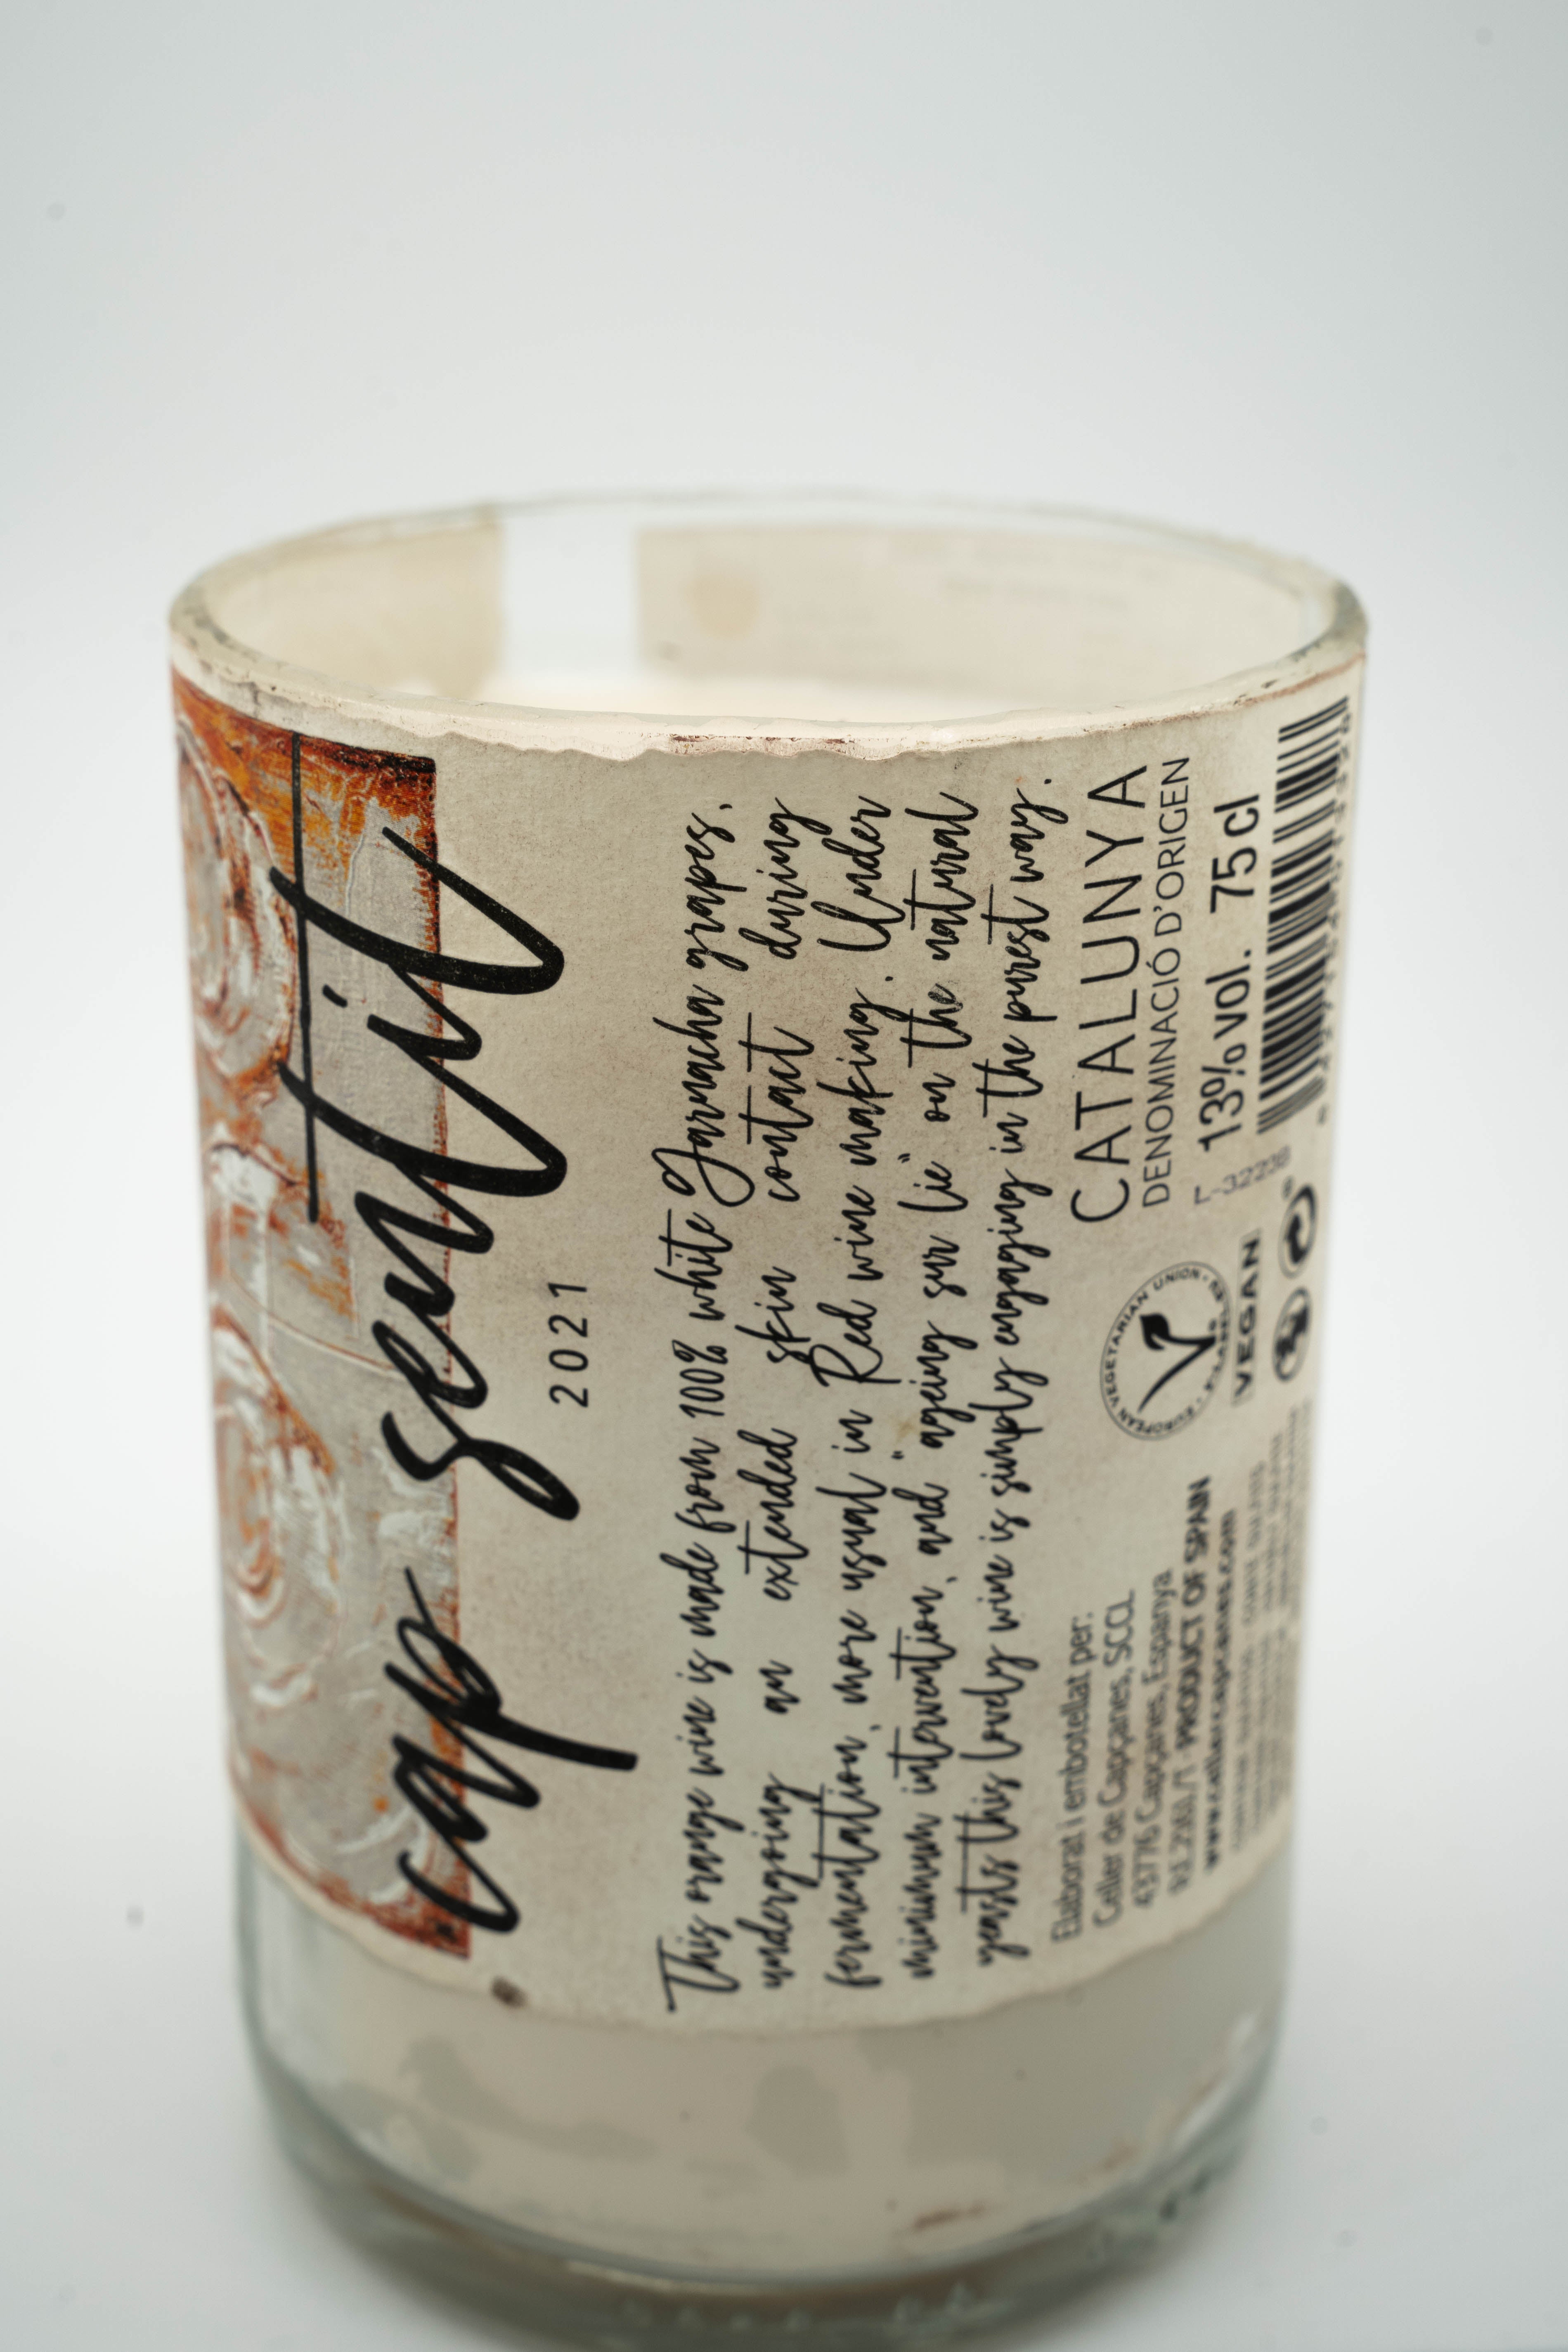 cap sentit
2021
This orange wine is made from 100% white Garnacha grapes,
undergoing an extended skin contact during
fermentation, more usual in Red wine making. Under
minimum intervention, and "ageing sur lie" on the natural
yeasts this lovely wine is simply engaging in the purest way.
Elaborat i embotellat per:
Celler de Capçanes, SCCL
43776 Capçanes, Espanya
PRODUCT OF SPAIN
www.cellercapcanes.com
EUROPEAN VEGETARIAN UNION
VEGAN
CATALUNYA
DENOMINACIÓ D'ORIGEN
13% vol. 75 cl